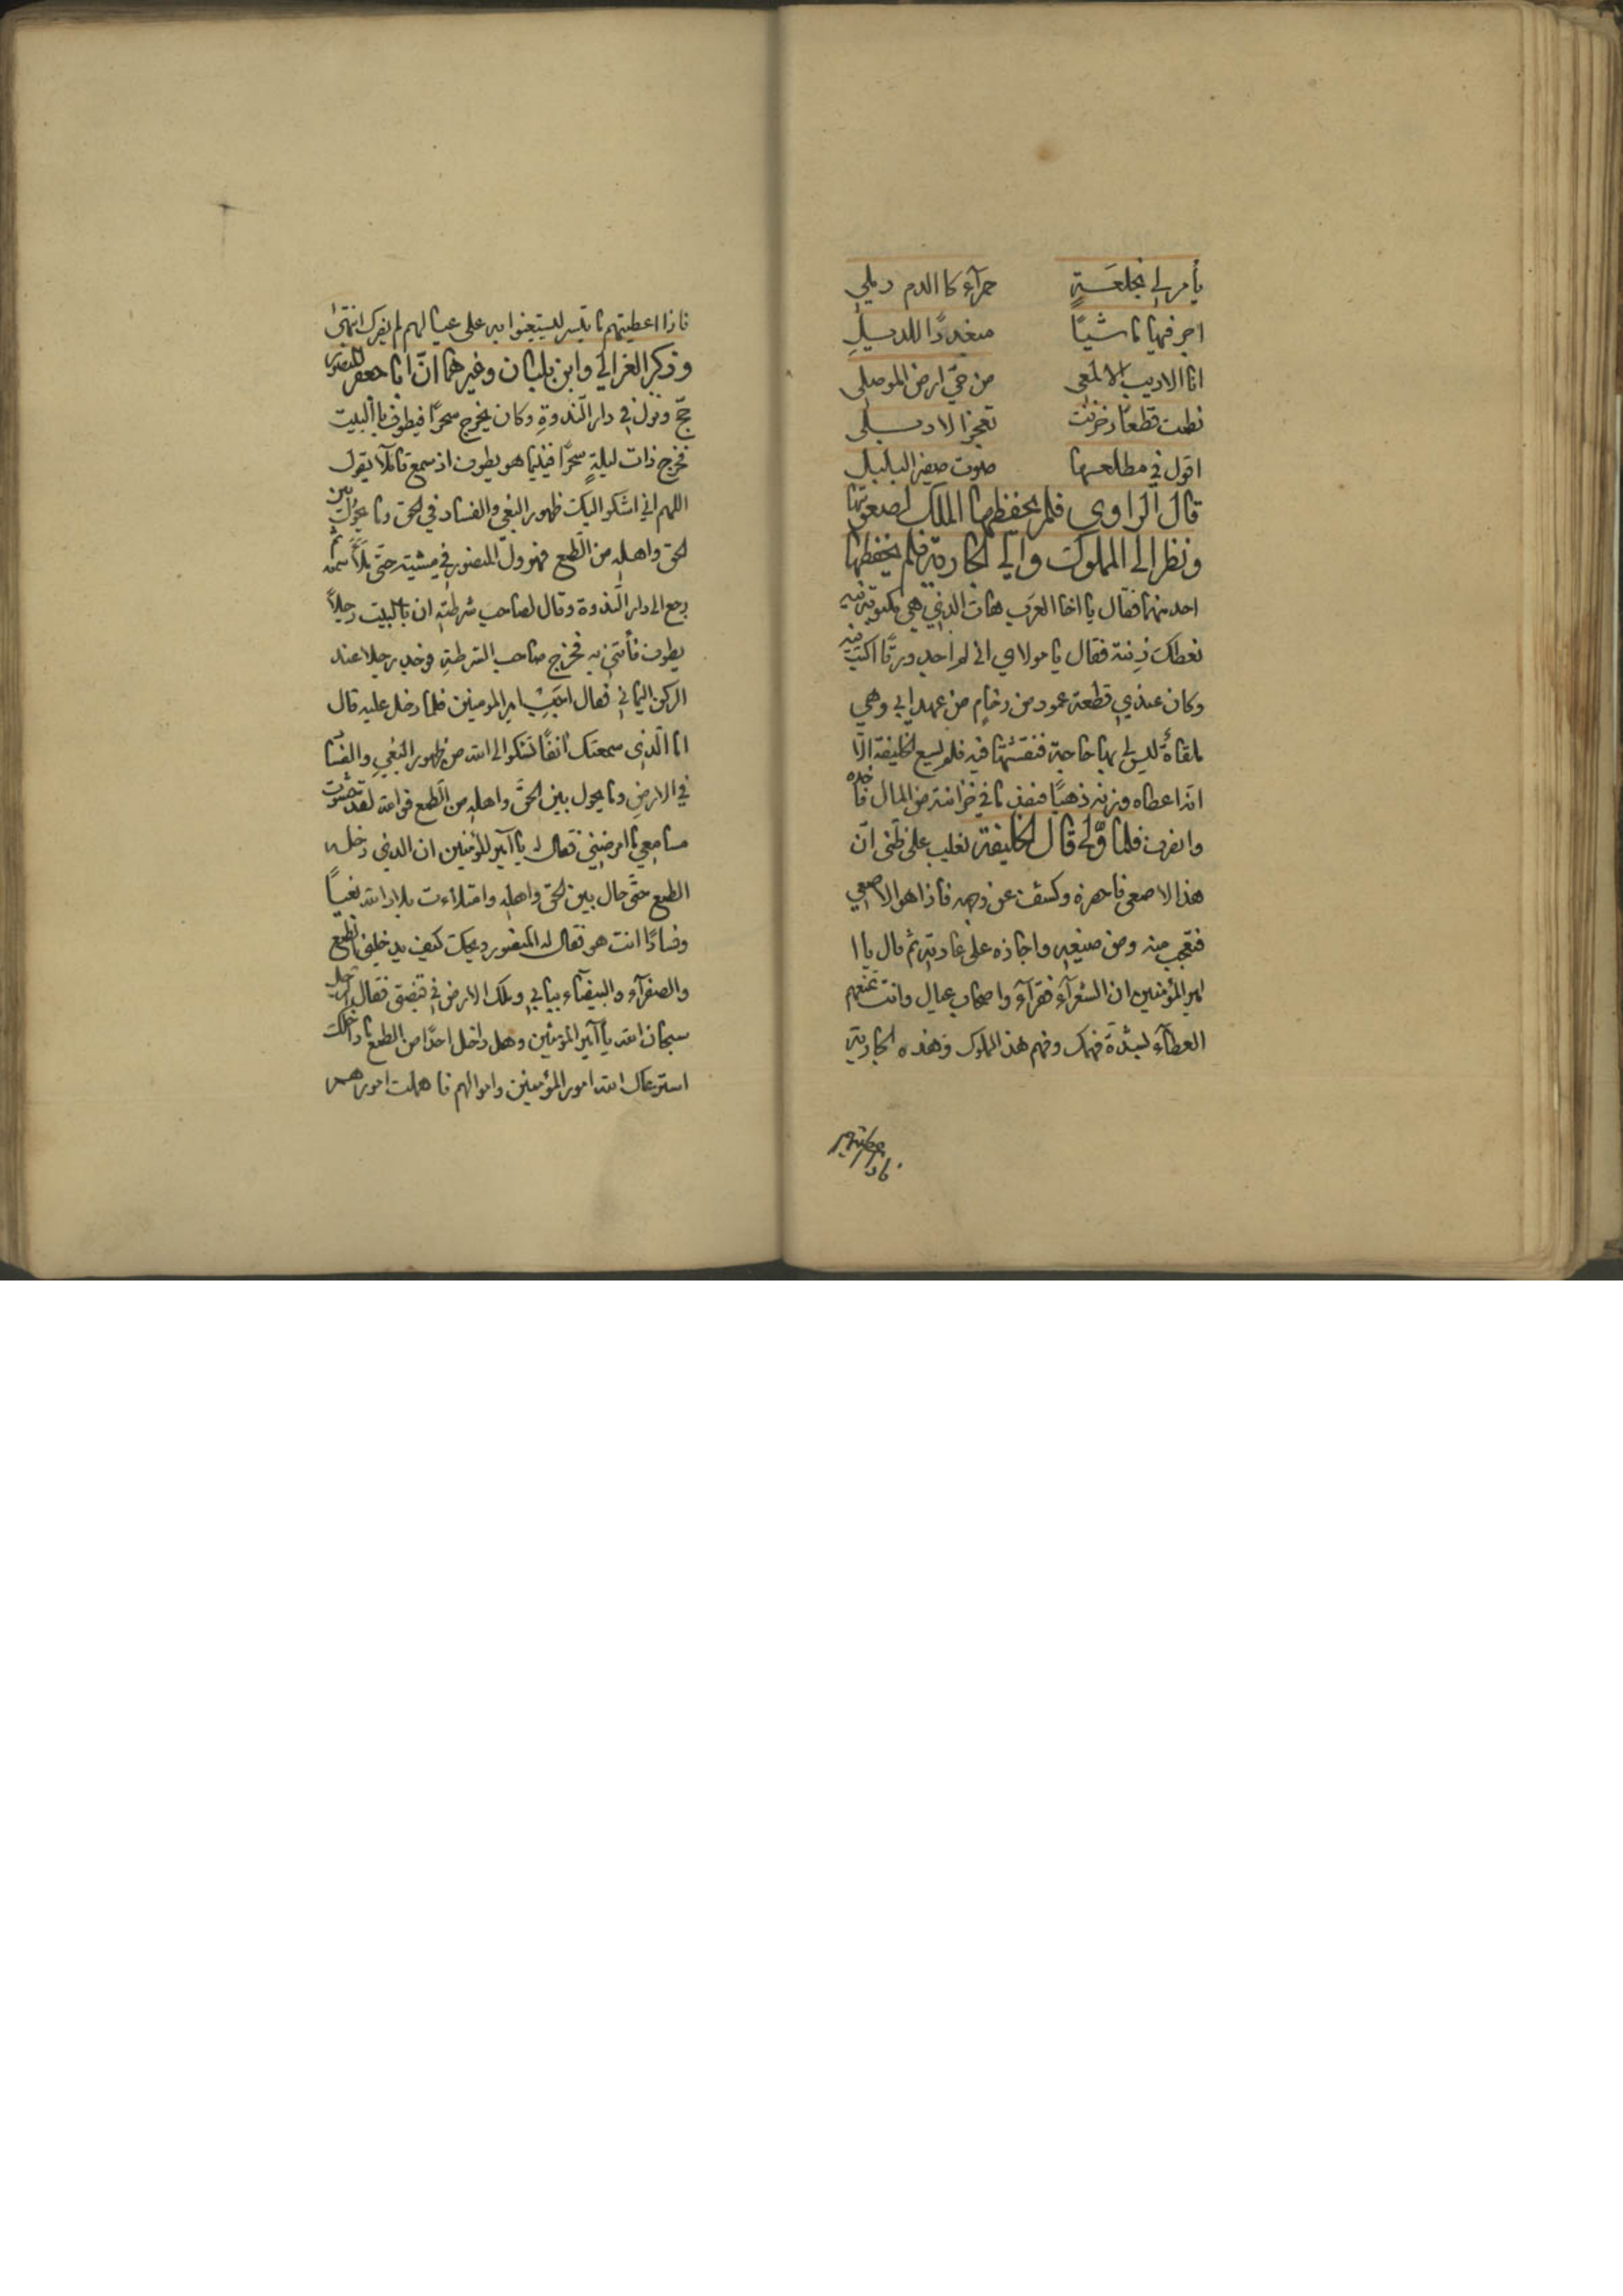 يأمر لي بخلعة حمرآء كا الدم دملي
اجر فيها ماشيًا مبغددًا للديل
انا الاديب الالمعي من حيّ ارض الموصلي
نظمت قطعًا زخرفت تعجز الادبلي
اقول في مطلعها صوت صفير البلبل
قال الراوي فلم يحفظها الملك لصعوبتها
ونظر الى المملوك والى الجارية فلم يحفظها
احد منهما فقال يا اخا العرب هات الذي هي مكتوبة فيه
نعطك زنته فقال يا مولاي اني لم اجد ورقًا اكتب فيه
وكان عندي قطعة عمود من رخام من عهد ابي وهي
ملقاة ليس لي بها حاجة فنقشتها فيه فلم يسع الخليفة الّا
انه اعطاه وزنه ذهبًا فنفذ ما في خزانته من المال فاخذه
وانصرف فلما ولّى قال الخليفة يغلب على ظني انّ
هذا الاصمعي فاحضره وكشف عن وجهه فاذا هو الاصمعي
فتعجب منه ومن صنيعه واجازه على عادته ثم قال يا ا
امير المؤمنين ان الشعرآء فقرآء واصحاب عيال وانت تمنعهم
العطآء لشدّة فهمك وفهم هذا المملوك وهذه الجارية
فاذا اعطيتهم ما تيسر ليستعينوا به على عيالهم لم يضرك انتهى
وذكر الغزالي وابن بلبان وغيرهما انّ ابا جعفر المنصور
حجّ ونزل في دار الندوة وكان يخرج سحرًا فيطوف باالبيت
فخرج ذات ليلة سحرًا فبينما هو يطوف اذ سمع قائلآ يقول
اللهم اني اشكو اليك ظهور البغي والفساد في الحق وما يحول بين
الحق واهله من الطمع فهرول المنصور في مشيته حتى ملأ سمعه ثم
رجع الى دار الندوة وقال لصاحب شرطته ان بالبيت رجلاً
يطوف فأتني به فخرج صاحب الشرطة فوجد رجلا عند
الركن اليماني فقال اجب امير المومنين فلما دخل عليه قال
ما الّذي سمعتك انفًا تشكوا الى الله من ظهور البغي والفسا
في الارض وما يحول بين الحق واهله من الطمع فوالله لقد حشوت
مسامعي ما امرضني فقال له يا آمير المؤمنين ان الذي دخله
الطمع حتى حال بين الحق واهله وامتلأءت بلاد الله بغيًا
وفسادًا انت هو فقال له المنصور ويحك كيف يدخلني الطمع
والصفرآء والبيضآء ببابي وملك الارض في قبضتي فقال الرجل
سبحان الله يا آمير المؤمنين وهل داخل احدًا من الطمع ما داخلك
استرعاك الله امور المؤمنين واموالهم فاهملت امورهم